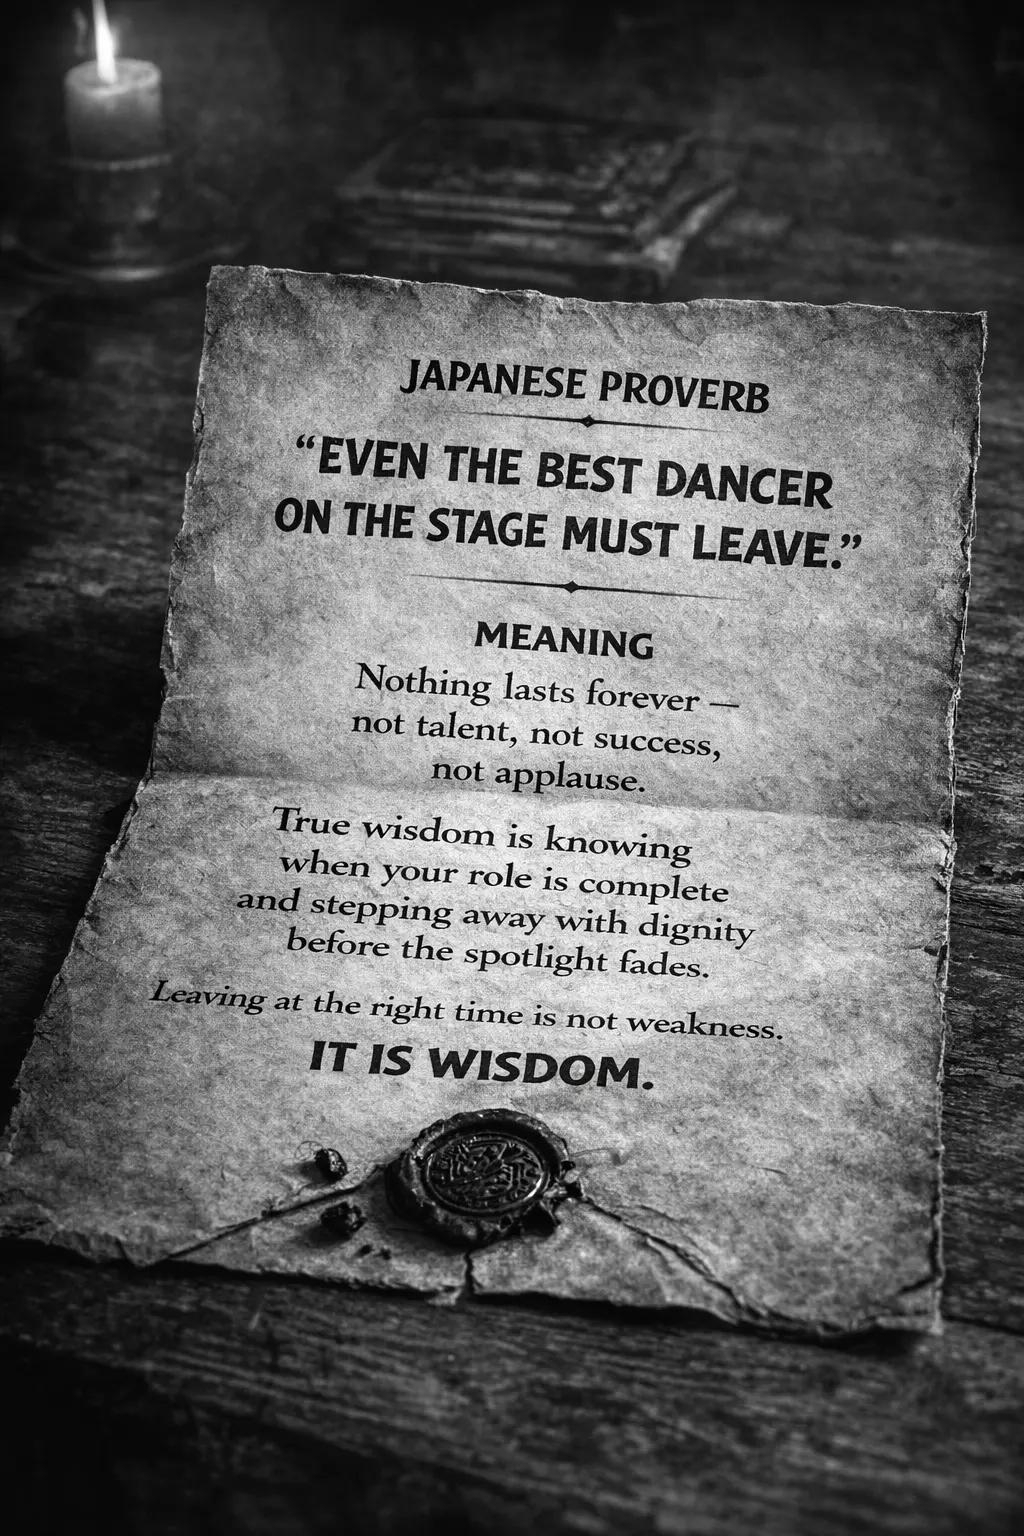 JAPANESE PROVERB
“EVEN THE BEST DANCER
ON THE STAGE MUST LEAVE.”
MEANING
Nothing lasts forever —
not talent, not success,
not applause.
True wisdom is knowing
when your role is complete
and stepping away with dignity
before the spotlight fades.
Leaving at the right time is not weakness.
IT IS WISDOM.